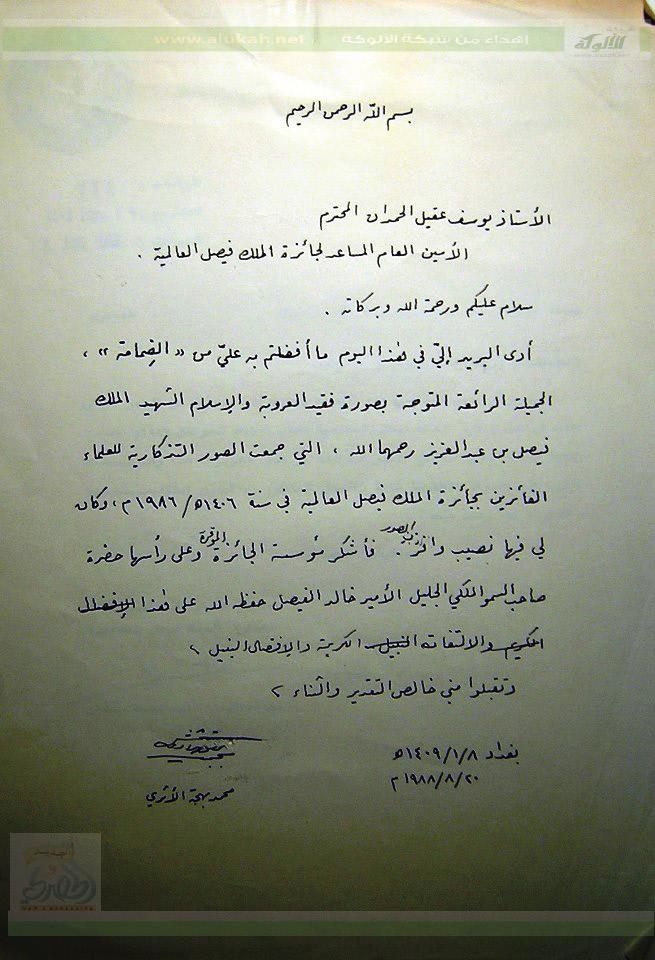 إهداء من شبكة الألوكة www.alukah.net
الألوكة
بسم الله الرحمن الرحيم
الأستاذ يوسف عقيل الحمدان المحترم
الأمين العام المساعد لجائزة الملك فيصل العالمية .
سلام عليكم ورحمة الله وبركاته .
أدى البريد إليّ في هذا اليوم ما أفضلتم به عليّ من « الضِمامة » ،
الجميلة الرائعة المتوجة بصورة فقيد العروبة والإسلام الشهيد الملك
فيصل بن عبدالعزيز رحمهما الله ، التي جمعت الصور التذكارية للعلماء
الفائزين بجائزة الملك فيصل العالمية في سنة ١٤٠٦ه/ ١٩٨٦م ، وكان
لي فيها نصيب وافر الصور . فأشكر مؤسسة الجائزة الموقرة وعلى رأسها حضرة
صاحب السمو الملكي الجليل الأمير خالد الفيصل حفظه الله على هذا الإفضال
الكريم والالتفاته النبيل الكريمة والإفضال النبيل ،
وتقبلوا مني خالص التقدير والثناء ،
بغداد ١٤٠٩/١/٨ه
١٩٨٨/٨/٢٠م
محمد بهجة الأثري